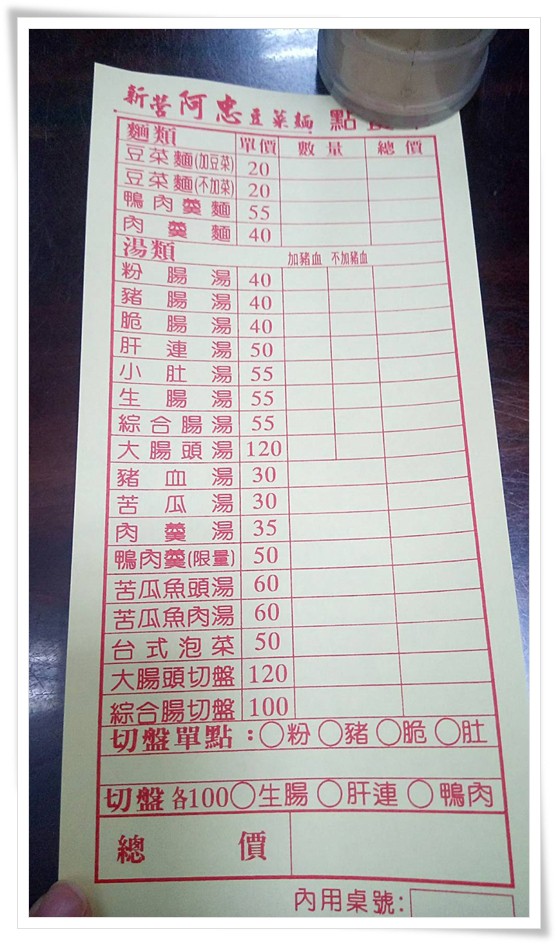 新營阿忠豆菜麵 點
麵類 單價 數量 總價
豆菜麵(加豆菜) 20
豆菜麵(不加菜) 20
鴨肉羹麵 55
肉羹麵 40
湯類 加豬血 不加豬血
粉腸湯 40
豬腸湯 40
脆腸湯 40
肝連湯 50
小肚湯 55
生腸湯 55
綜合腸湯 55
大腸頭湯 120
豬血湯 30
苦瓜湯 30
肉羹湯 35
鴨肉羹(限量) 50
苦瓜魚頭湯 60
苦瓜魚肉湯 60
台式泡菜 50
大腸頭切盤 120
綜合腸切盤 100
切盤單點:○粉○豬○脆○肚
切盤各100○生腸○肝連○鴨肉
總價
內用桌號: